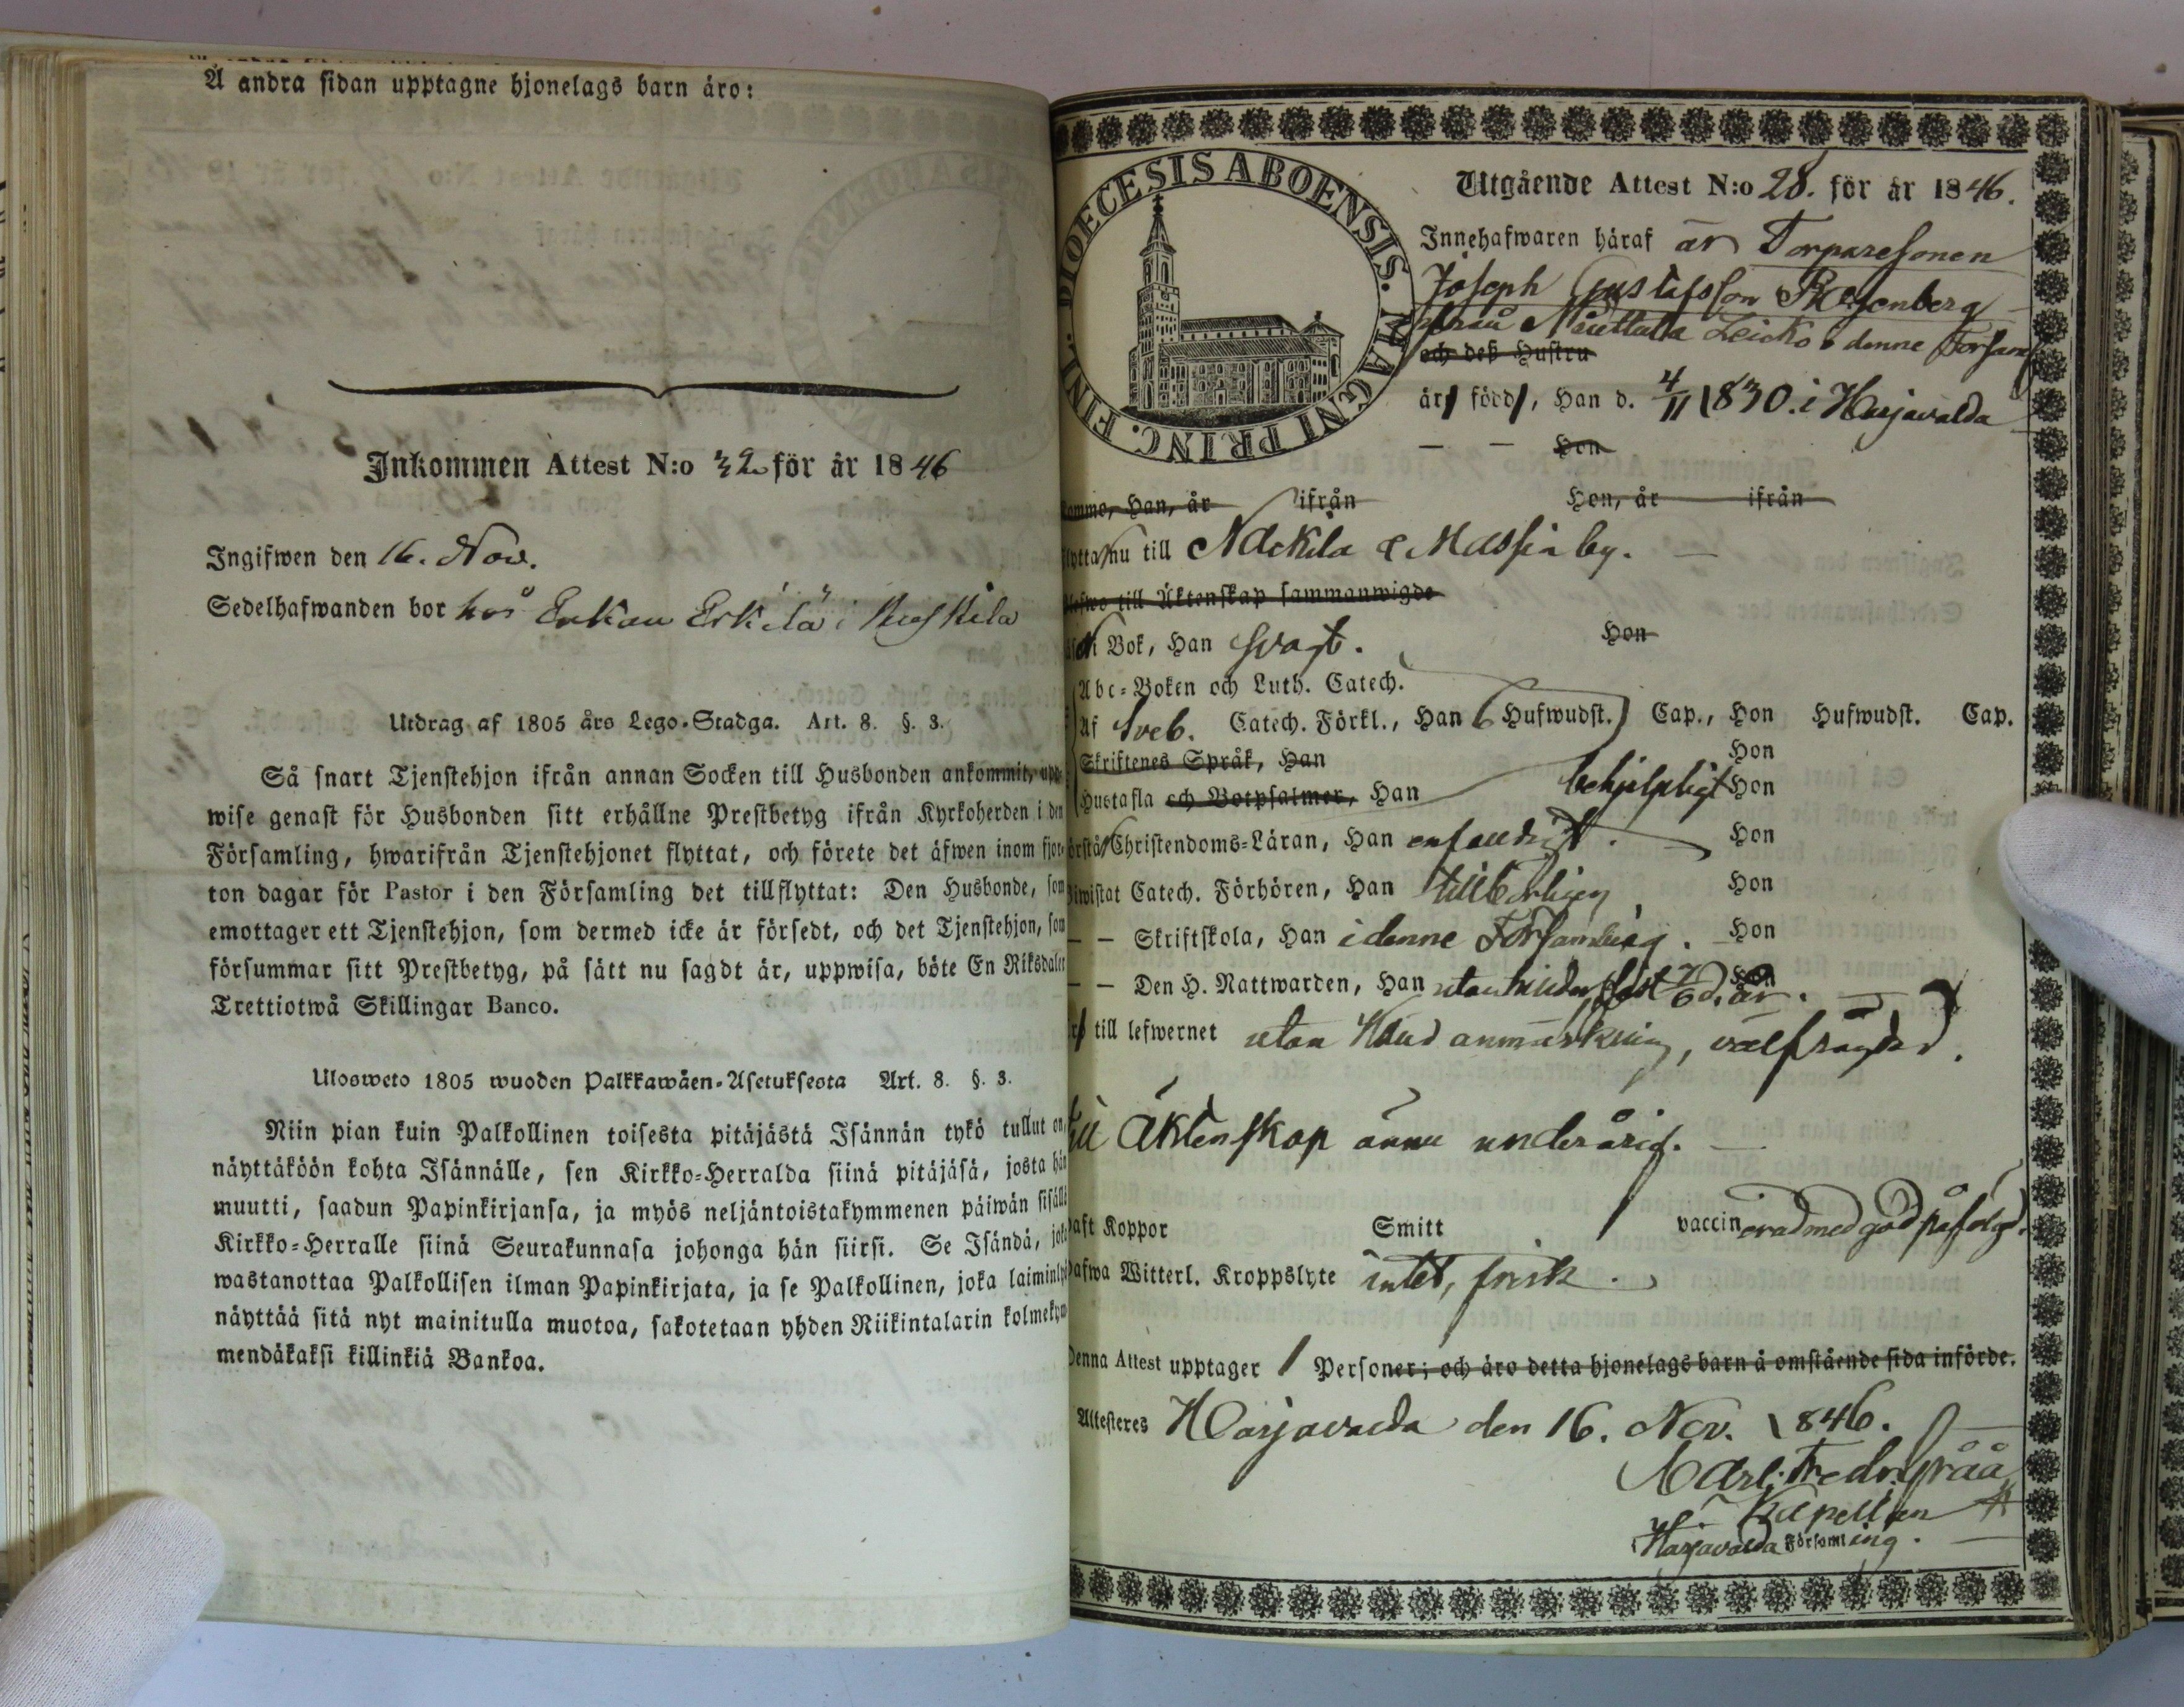 Å andra sidan upptagne hjonelags barn äro:
Inkommen Attest N:o 32 för år 1846
Ingifwen den 16. Nov.
Sedelhafwanden bor hos Erkau Erkilä i
Utdrag af 1805 års Lego-Stadga. Art. 8. §. 3.
Så snart Tjenstehjon ifrån annan Socken till Husbonden ankommit, upp-
wise genast för Husbonden sitt erhållne Prestbetyg ifrån Kyrkoherden i den
Församling, hwarifrån Tjenstehjonet flyttat, och förete det äfwen inom fjor-
ton dagar för Pastor i den Församling det tillflyttat: Den Husbonde, som
emottager ett Tjenstehjon, som dermed icke är försedt, och det Tjenstehjon, som
försummar sitt Prestbetyg, på sätt nu sagdt är, uppwisa, böte En Riksdaler
Trettiotwå Skillingar Banco.
Ulosweto 1805 wuoden Palkkawäen-Asetuksesta Art. 8. §. 3.
Niin pian kuin Palkollinen toisesta pitäjästä Isännän tykö tullut on,
näyttäköön kohta Isännälle, sen Kirkko-Herralda siinä pitäjäsä, josta hän
muutti, saadun Papinkirjansa, ja myös neljäntoistakymmenen päiwän sisällä
Kirkko-Herralle siinä Seurakunnasa johonga hän siirsi. Se Isändä, joka
wastanottaa Palkollisen ilman Papinkirjata, ja se Palkollinen, joka laiminlyö
näyttää sitä nyt mainitulla muotoa, sakotetaan yhden Riikintalarin kolmekym-
mendäkaksi killinkiä Bankoa.
DIOECESIS ABOENSIS. MAGNI PRINC. FINL.
Utgående Attest N:o 28. för år 1846.
Innehafwaren häraf är Torparesonen
Joseph Gustafsson Rosenberg
ifrån Leiko i denne Församl
och deß Hustru
är född, Han d. 4/11 1830. i Harjavalda
— — Hon
kommo, Han, år ifrån Hon, år ifrån
flytta nu till Nackila & Massia by. —
blefwo till Äktenskap sammanwigde
i Bok, Han svagt. Hon
Abc-Boken och Luth. Catech.
Af Sveb. Catech. Förkl., Han 6 Hufwudst. Cap., Hon Hufwudst. Cap.
Skriftenes Språk, Han Hon
Hustafla och Botpsalmer, Han behjelpligt Hon
förstår Christendoms-Läran, Han enfaldigt. Hon
biwistat Catech. Förhören, Han tillbörligen Hon
— — Skriftskola, Han i denne Församling. Hon
— — Den H. Nattwarden, Han utan hinder, sist 7/6 d. år. Hon
är till lefwernet utan känd anmärkning, välfrägdad.
till Äktenskap ännu underårig. —
haft Koppor Smitt vaccinerad med god påfölgd.
hafwa Witterl. Kroppslyte intet, frisk.
Denna Attest upptager 1 Personer; och äro detta hjonelags barn å omstående sida införde.
Attesteres Harjavalda den 16. Nov. 1846.
Carl. Fredr. Gråå
Kapellan
Harjavalda Församling.